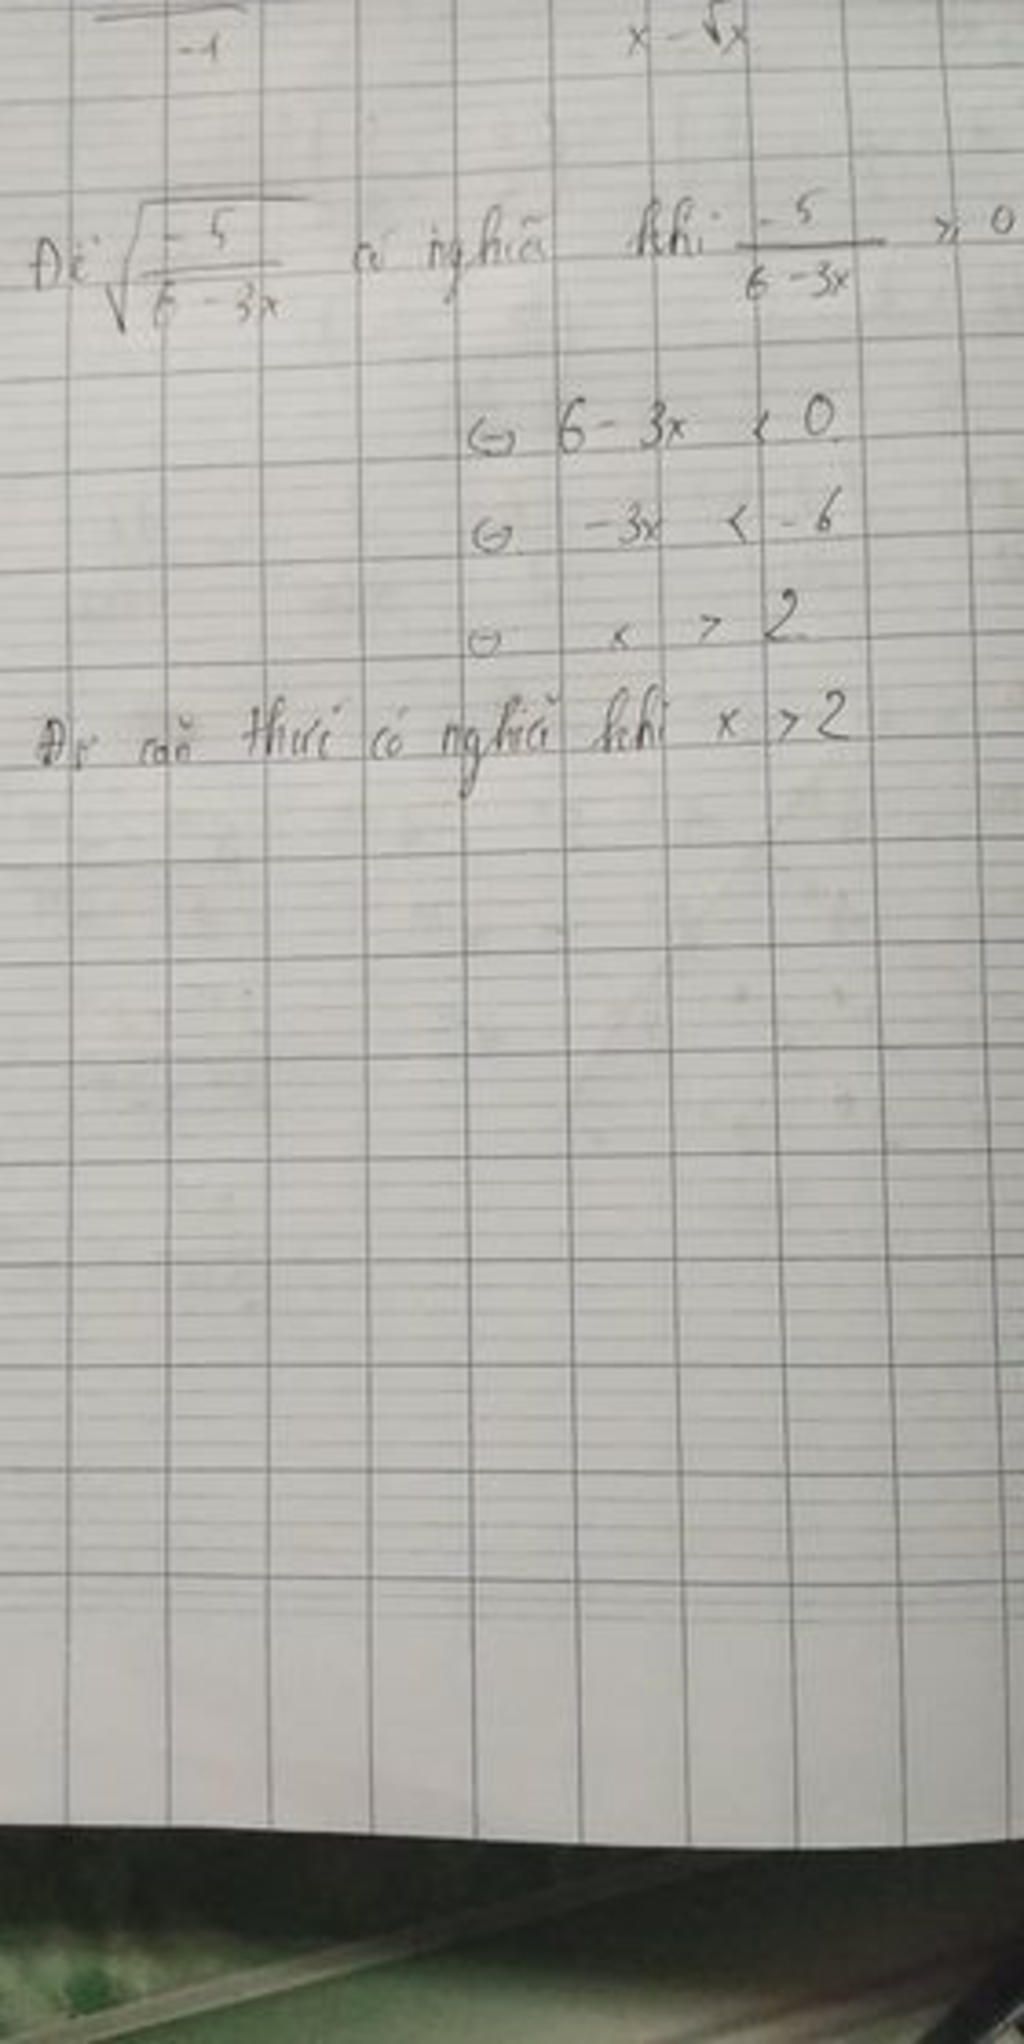 -1 x - √x
Để √(-5/(6 - 3x)) có nghĩa khi -5/(6 - 3x) ≥ 0
⇔ 6 - 3x < 0
⇔ -3x < -6
⇔ x > 2
Để căn thức có nghĩa khi x > 2